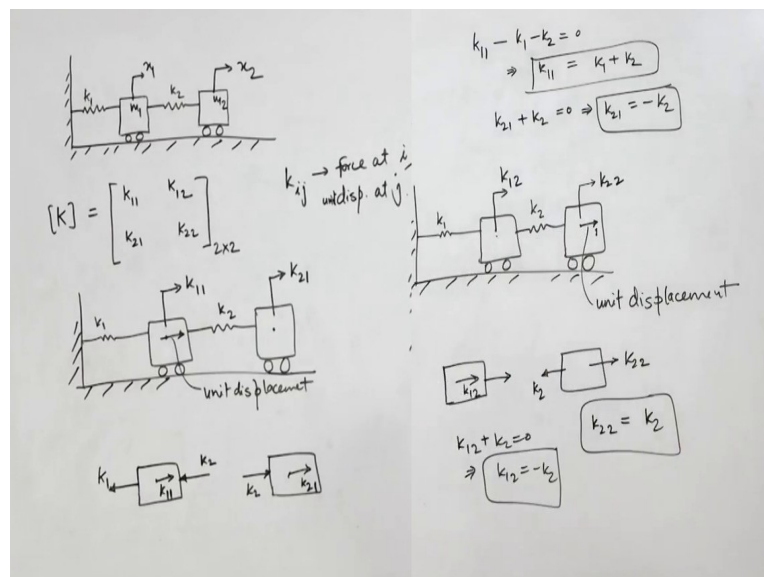 x₁
x₂
k₁
m₁
k₂
m₂
[K] = [k₁₁ k₁₂
k₂₁ k₂₂]₂ₓ₂
kᵢⱼ → force at i,
unit disp. at j.
k₁₁
k₂₁
k₁
k₂
unit displacement
k₁
k₁₁
k₂
k₂
k₂₁
k₁₁ - k₁ - k₂ = 0
⇒ k₁₁ = k₁ + k₂
k₂₁ + k₂ = 0 ⇒ k₂₁ = -k₂
k₁₂
k₂₂
k₁
k₂
1
unit displacement
k₁₂
k₂
k₂₂
k₂₂ = k₂
k₁₂ + k₂ = 0
⇒ k₁₂ = -k₂